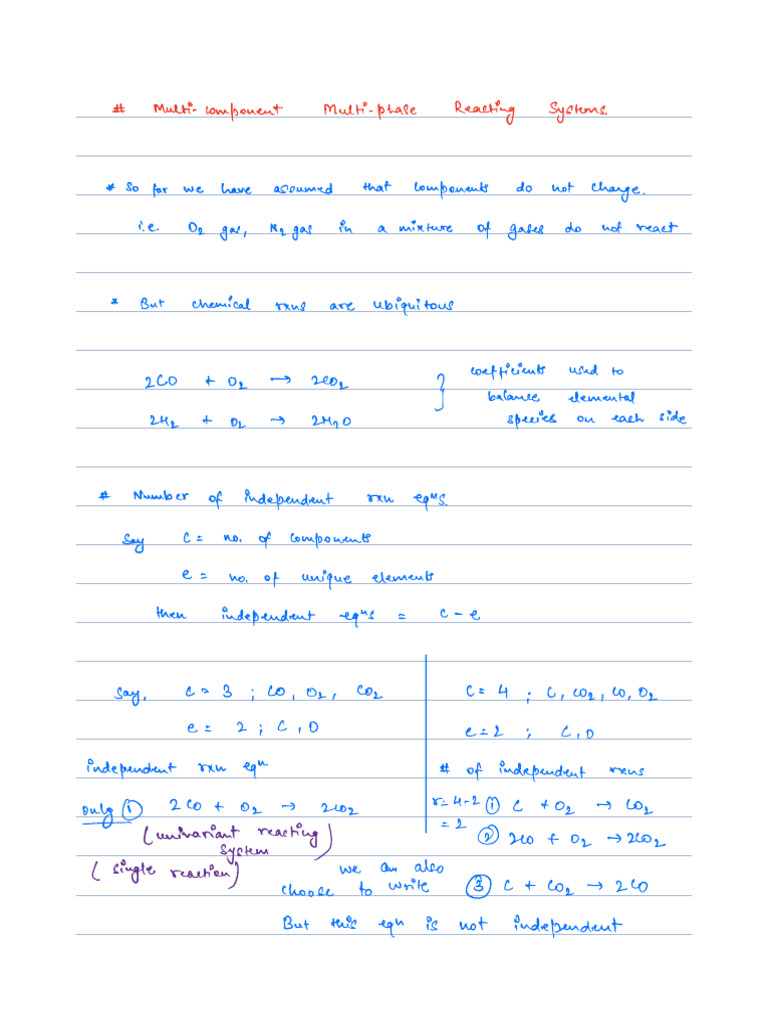 # Multi-component Multi-phase Reacting Systems
* So far we have assumed that components do not change.
i.e. O2 gas, N2 gas in a mixture of gases do not react
* But chemical rxns are ubiquitous
2CO + O2 → 2CO2
2H2 + O2 → 2H2O
} coefficients used to
balance elemental
species on each side
# Number of independent rxn eqns.
Say C = no. of components
e = no. of unique elements
then independent eqns = c - e
Say, C = 3 ; CO, O2, CO2
e = 2 ; C, O
independent rxn eqn
only ① 2CO + O2 → 2CO2
(univariant reacting
system)
(single reaction)
C = 4 ; C, CO2, CO, O2
e = 2 ; C, O
# of independent rxns
r = 4-2 ① C + O2 → CO2
= 2
② 2CO + O2 → 2CO2
we can also
choose to write ③ C + CO2 → 2CO
But this eqn is not independent